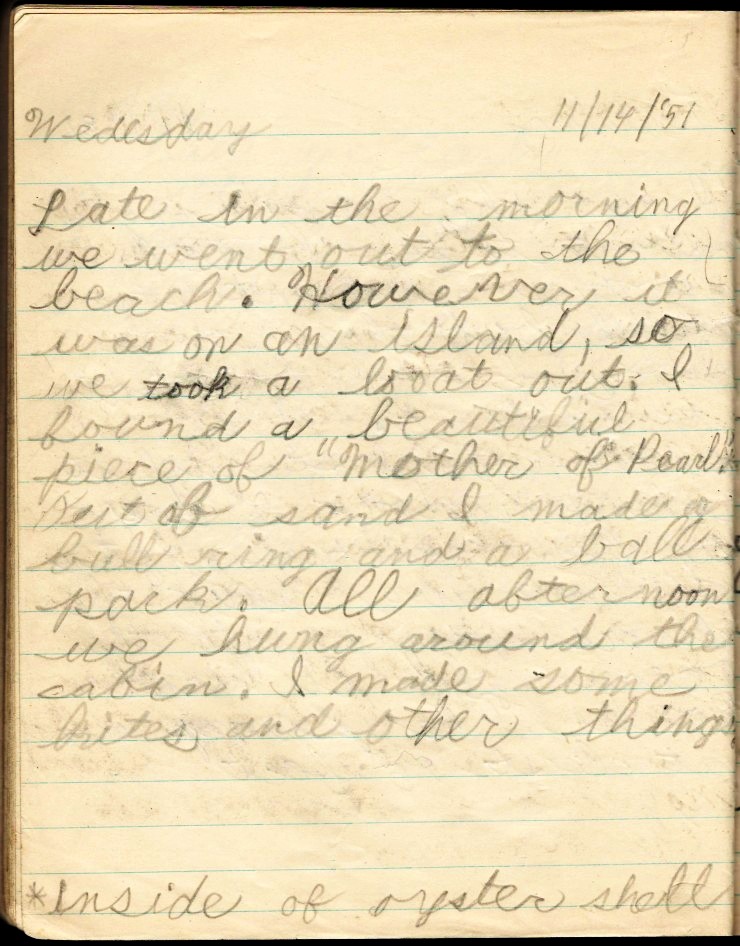 Wedesday 11/14/'51
Late in the morning
we went out to the
beach. However it
was on an island, so
we took a boat out. I
found a beautiful
piece of "Mother of Pearl".*
Out of sand I made a
bull ring and a ball
park. All afternoon
we hung around the
cabin. I made some
kites and other things.
*Inside of oyster shell